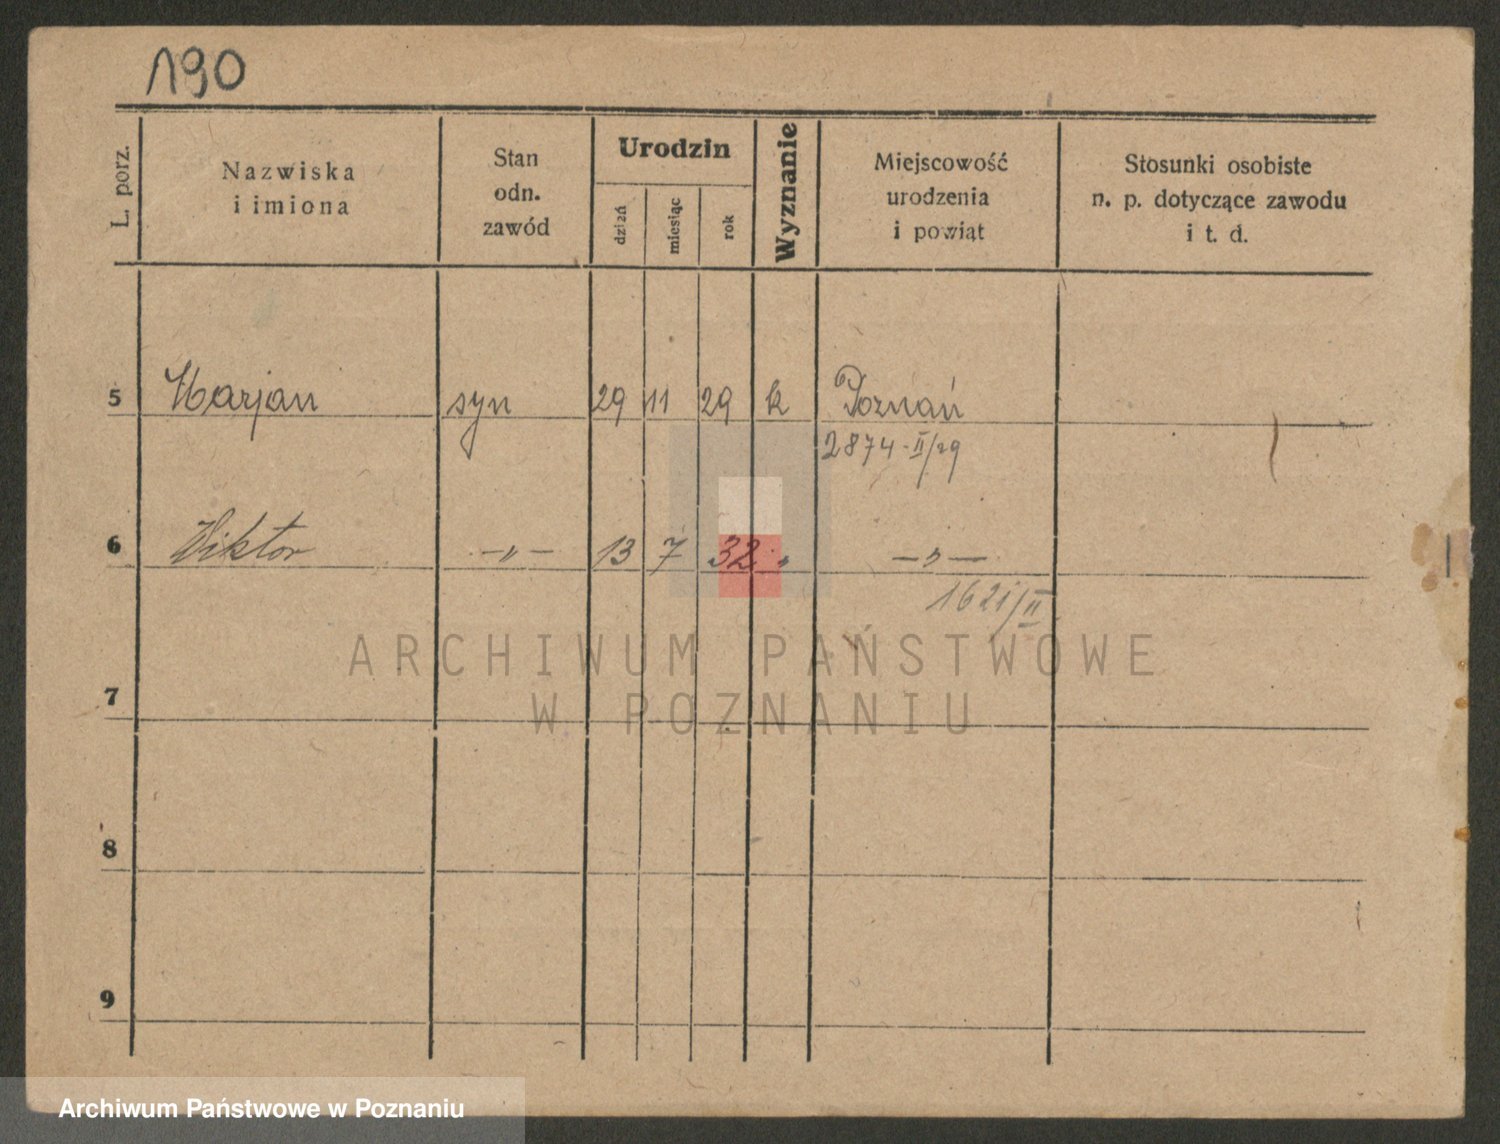 190
L. porz.
Nazwiska
i imiona
Stan
odn.
zawód
Urodzin
dzień
miesiąc
rok
Wyznanie
Miejscowość
urodzenia
i powiąt
Stosunki osobiste
n. p. dotyczące zawodu
i t. d.
5 Marjan syn 29 11 29 k Poznań
2874-II/29
6 Wiktor —„— 13 7 32 „ —„—
1621/II
ARCHIWUM PAŃSTWOWE
W POZNANIU
7
8
9
Archiwum Państwowe w Poznaniu